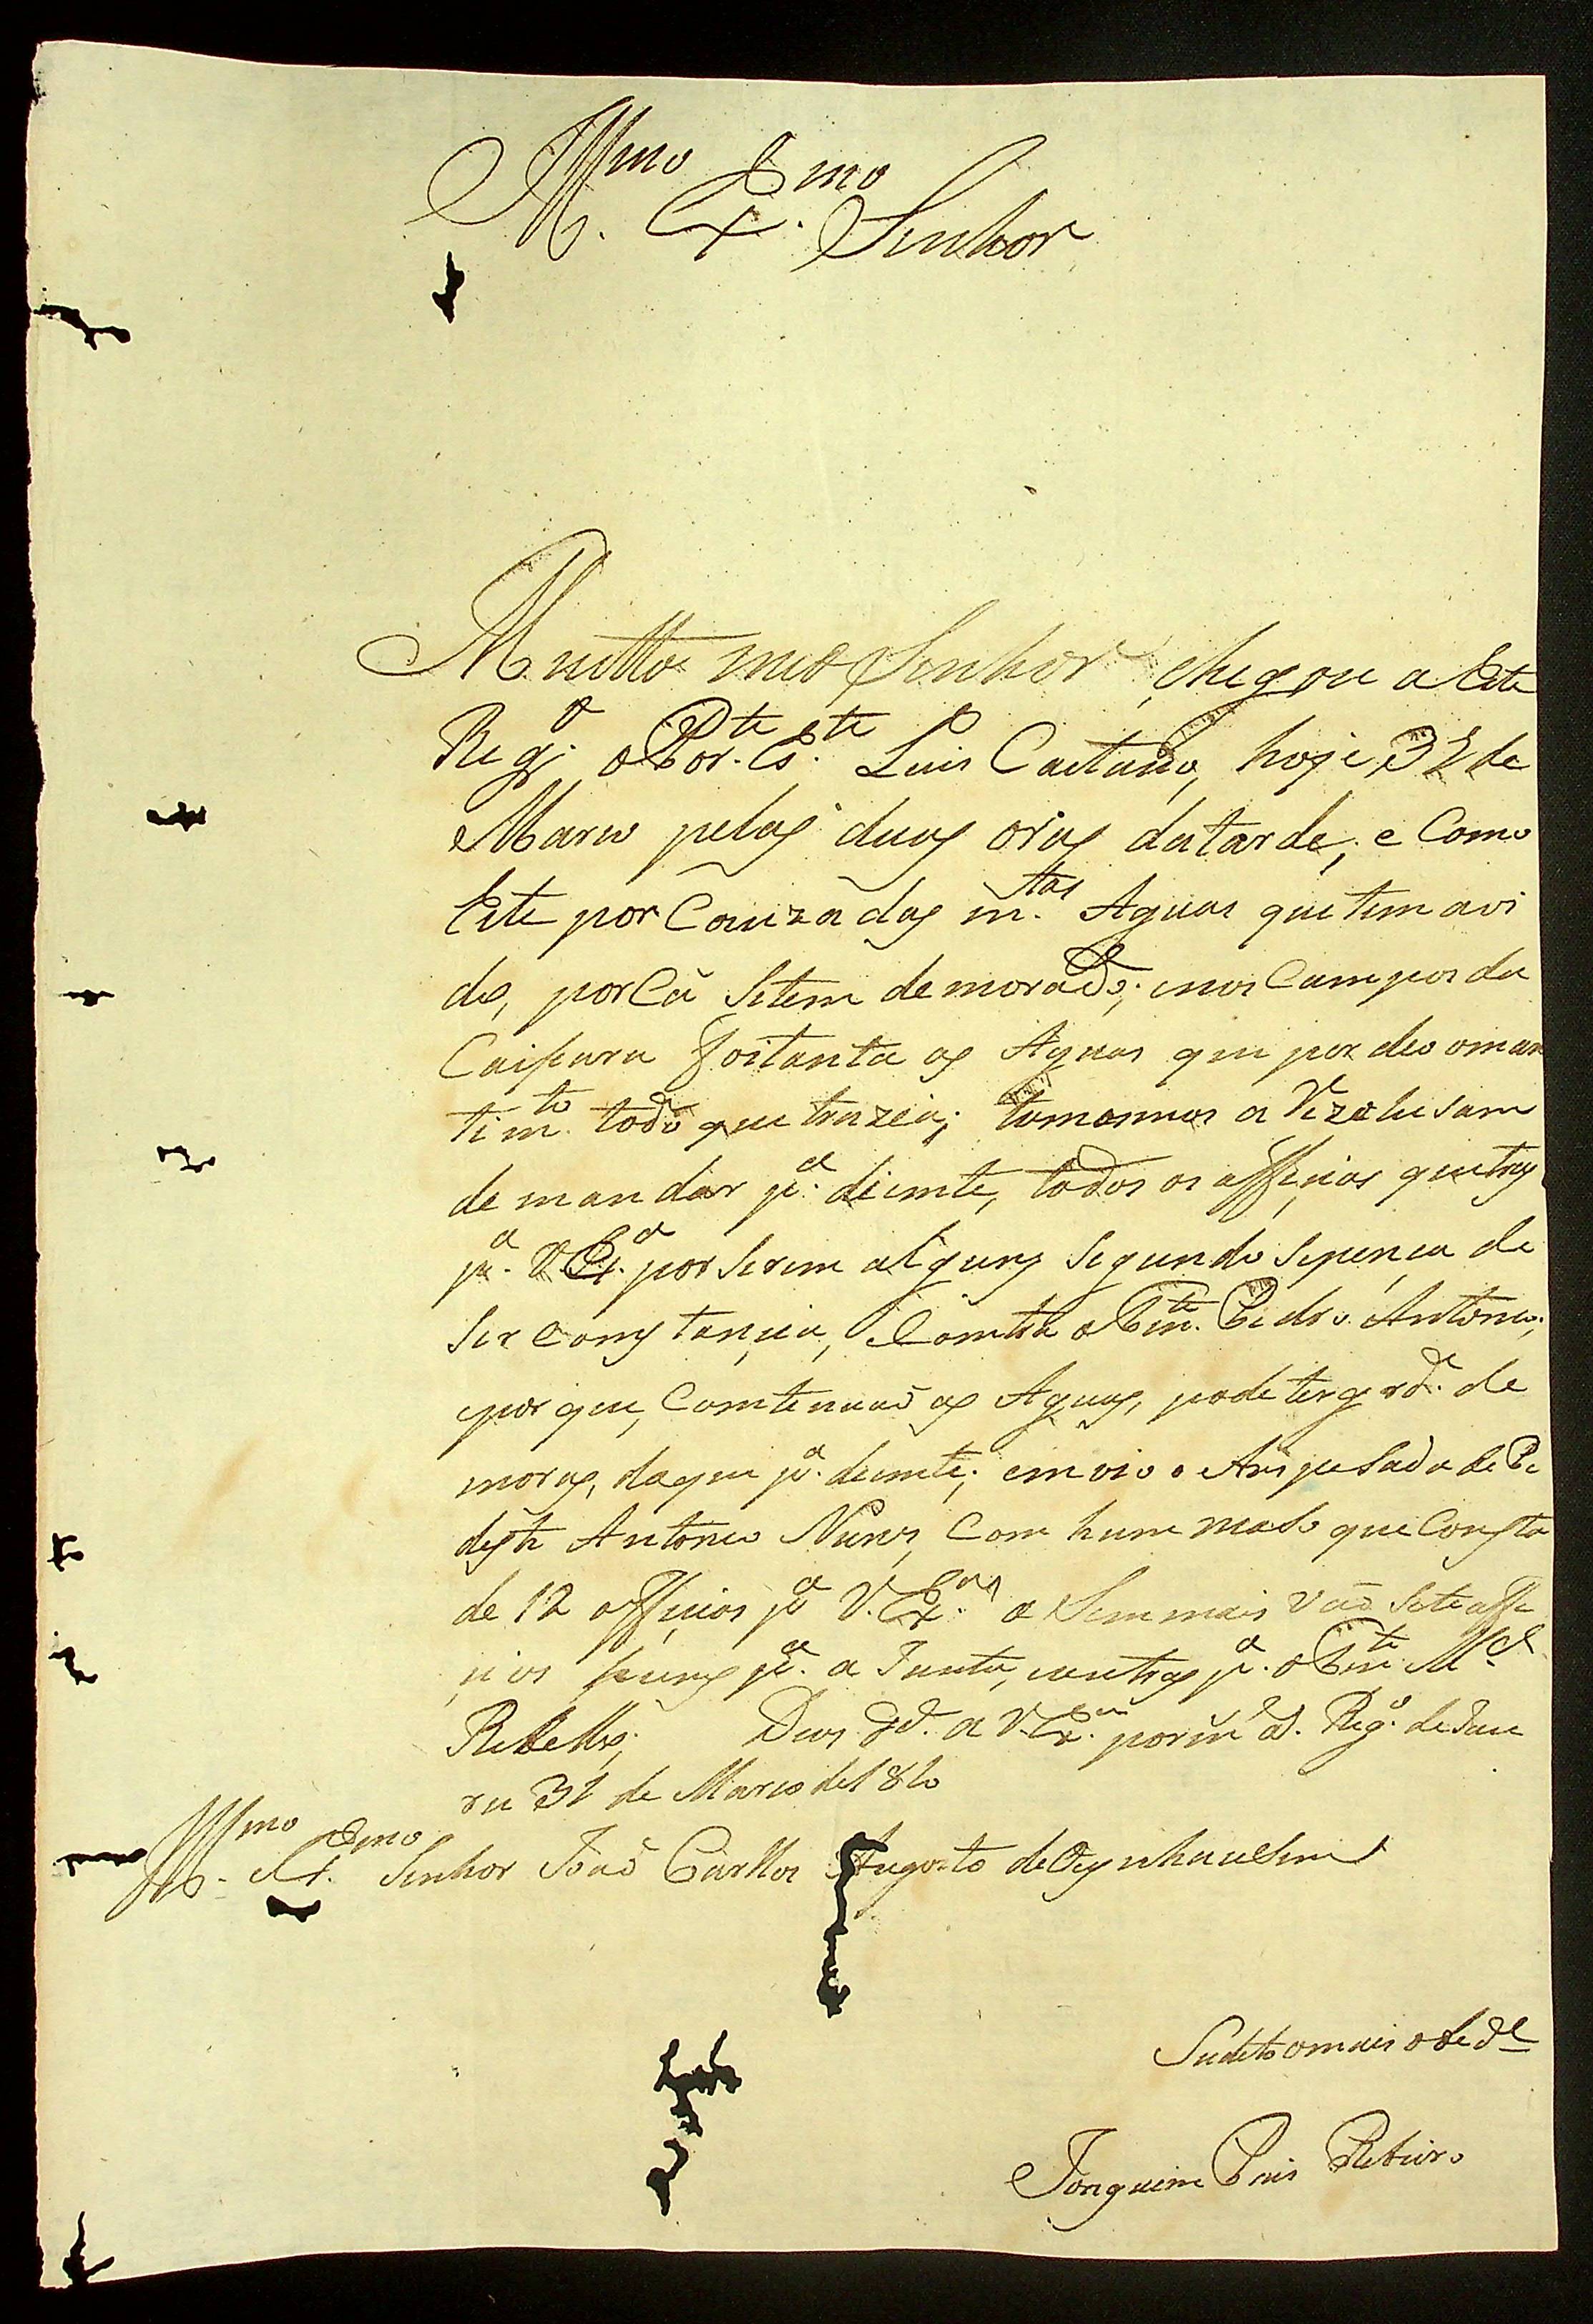 Illmo Exmo
Senhor
Muitto meo Senhor chegou a Este
Rego o Por.te Es.te Luis Caetano, hoje 31 de
Marso pelas duas oras datarde, e Como
Este por Couza das m.tas Aguas que tem avi
do, por Cá Setem demorado; e nos Campos da
foi tanta as Aguas que perdeo o man
tim.to todo que trazia;
de mandar p.a diente, todos os afficios que tras
p.a V. Ex.a por serem alguns Segundo se pença de
Sir constançia, Contra o Ten.te Pedro Antonio;
porque, Comtenuaõ as Aguas, pode ter grd.e de
moras, daqui p.a diente; emvio o Anspesada de Pe
deste Antonio Nunes, Com hum maso que Consta
de 12 officios p.a V. Ex.a e Sem mais vaõ Sete affi
çios huns p.a a Junta, e outros p.a o Ten.te M.el
Rebello; Deos gd.e a V. Ex.a por m.s a.s Reg.o de Jau
ru 31 de Marso de 1810
Illmo Exmo Senhor Joaõ Carllos Augosto de Oeynhausem
Sudito o mais obed.e
Joaquim Pais Ribeiro